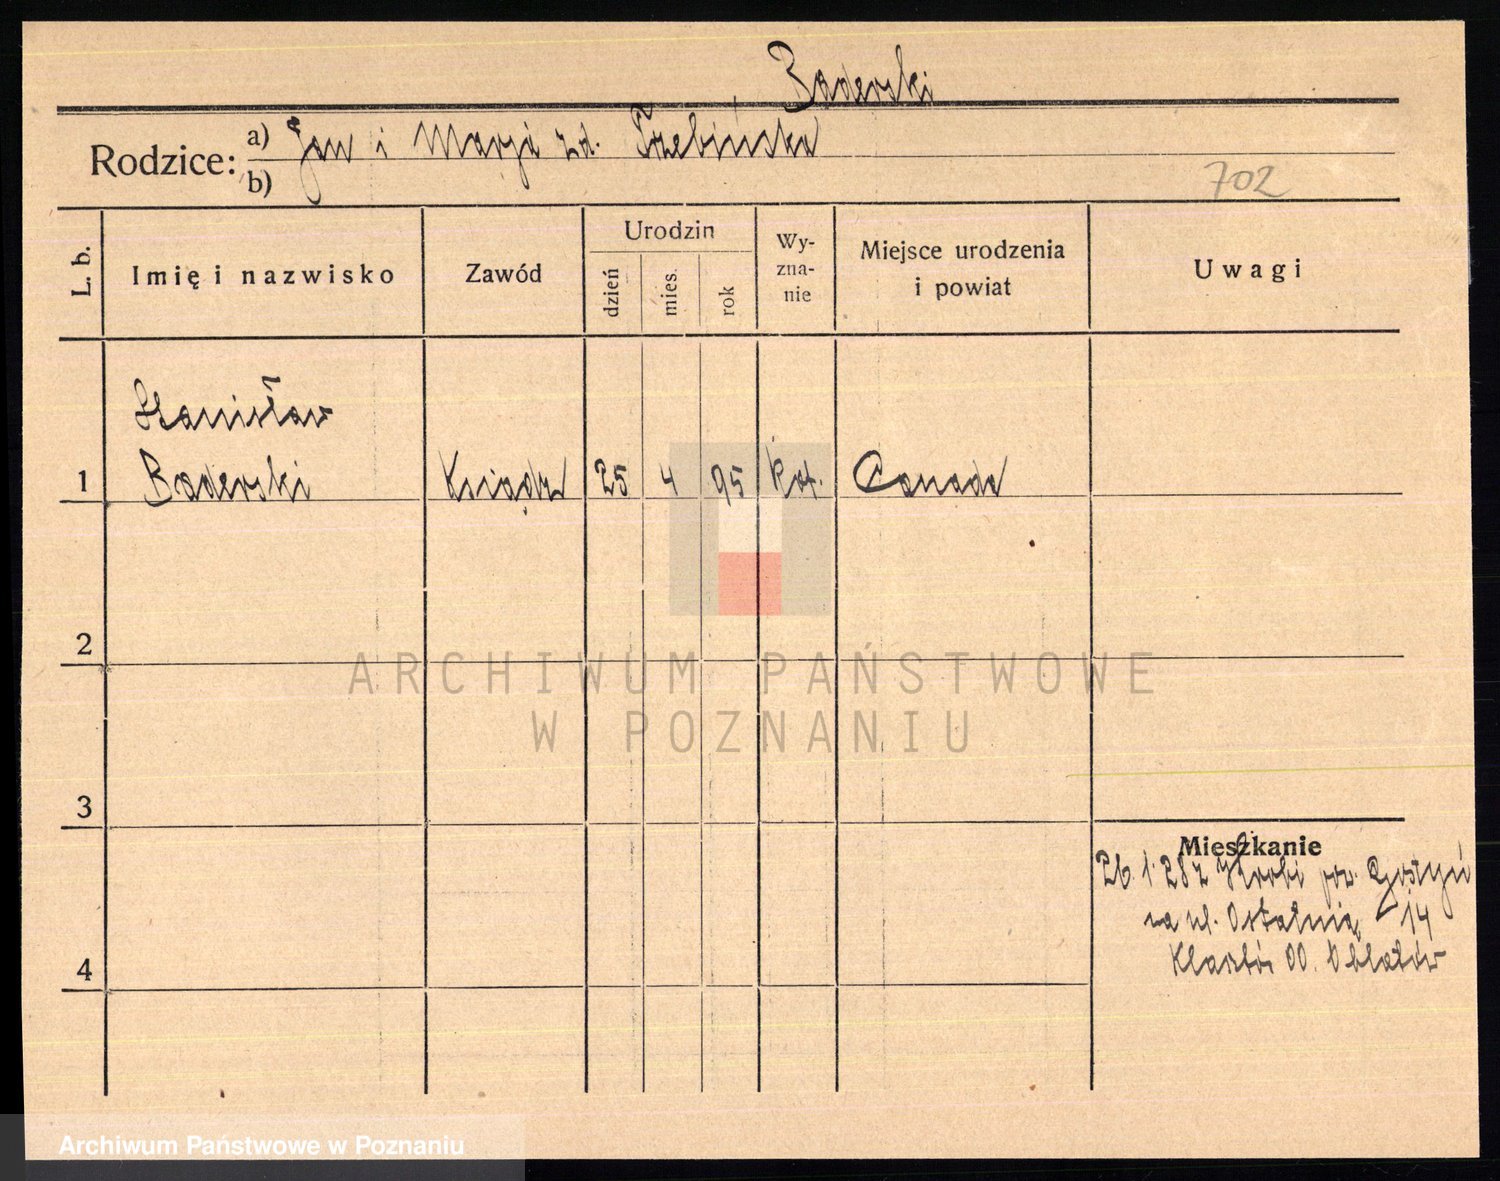 Baderski
Rodzice: a) Jan i Marja zd. Trzebińska
b)
702
L. b.
Imię i nazwisko
Zawód
Urodzin
dzień
mies.
rok
Wy-
zna-
nie
Miejsce urodzenia
i powiat
Uwagi
Stanisław
1 Baderski Ksiądz 25 4 95 kat. Canada
2
ARCHIWUM PAŃSTWOWE
W POZNANIU
3
Mieszkanie
26 1. 28 z pow. Gostyń
na ul. Ostatnią 14
Klasztór OO. Oblatów
4
Archiwum Państwowe w Poznaniu